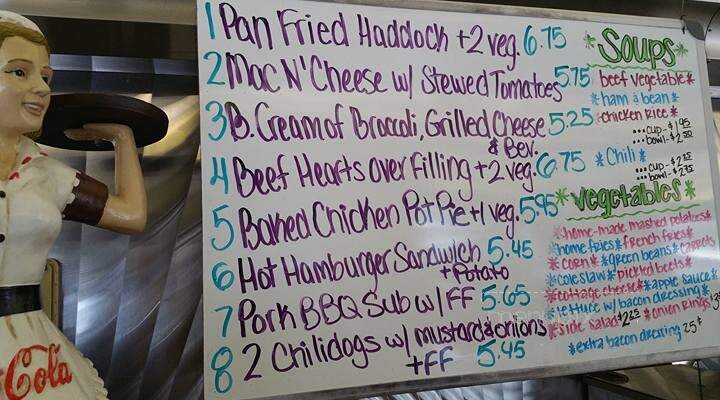 1 Pan Fried Haddock +2 veg. 6.75
2 Mac N' Cheese w/ Stewed Tomatoes 5.75
3 B. Cream of Broccoli, Grilled Cheese 5.25
& Bev.
4 Beef Hearts over Filling +2 veg. 6.75
5 Baked Chicken Pot Pie +1 veg. 5.95
6 Hot Hamburger Sandwich 5.45
+ Potato
7 Pork BBQ Sub w/ FF 5.65
8 2 Chilidogs w/ mustard & onions
+FF 5.45
*Soups*
beef vegetable*
*ham & bean*
*chicken rice*
...cup-$1.95
...bowl-$2.50
*Chili*
...cup-$2.25
...bowl-$2.75
*Vegetables*
*home-made mashed potatoes*
home fries*french fries*
*corn*green beans*carrots
*coleslaw*pickled beets*
*cottage cheese*apple sauce*
*lettuce w/ bacon dressing*
*side salad $2.25*onion rings
*extra bacon dressing 25¢
Cola